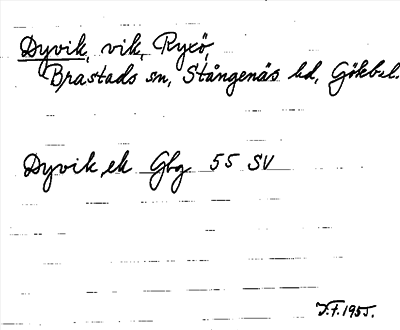 Dyvik, vik, Ryxö,
Brastads sn, Stångenäs hd, Gökbul.
Dyvik ek Gbg 55 SV
V.F. 1955.